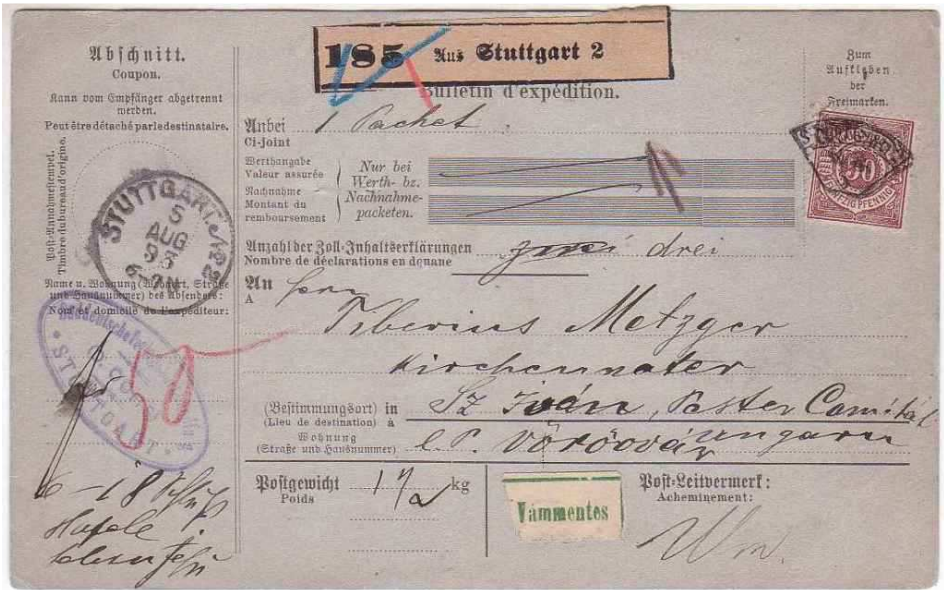 Abschnitt.
Coupon.
Kann vom Empfänger abgetrennt
werden.
Peut être détaché par le destinataire.
Post-Annahmestempel.
Timbre du bureau d'origine.
STUTTGART. No 2
5
AUG
93
6-7N
Name u. Wohnung (Wohnort, Straße
und Hausnummer) des Absenders:
Nom et domicile de l'expéditeur:
STUTTGART
50
185 Aus Stuttgart 2
Bulletin d'expédition.
Zum
Aufkleben
der
Freimarken.
50
FÜNFZIG PFENNIG
Anbei 1 Packet
Ci-joint
Werthangabe
Valeur assurée
Nachnahme
Montant du
remboursement
Nur bei
Werth- bz.
Nachnahme-
packeten.
Anzahl der Zoll-Inhaltserklärungen zwei drei
Nombre de déclarations en douane
An Herrn
A
Tiberius Metzger
Kirchenmaler
(Bestimmungsort) in Sz Iván, Pester Comitat
(Lieu de destination) à
Wohnung
(Straße und Hausnummer)
l. P. Vörösvár Ungarn
Postgewicht 1 1/2 kg
Poids
Vámmentes
Post-Leitvermerk:
Acheminement: